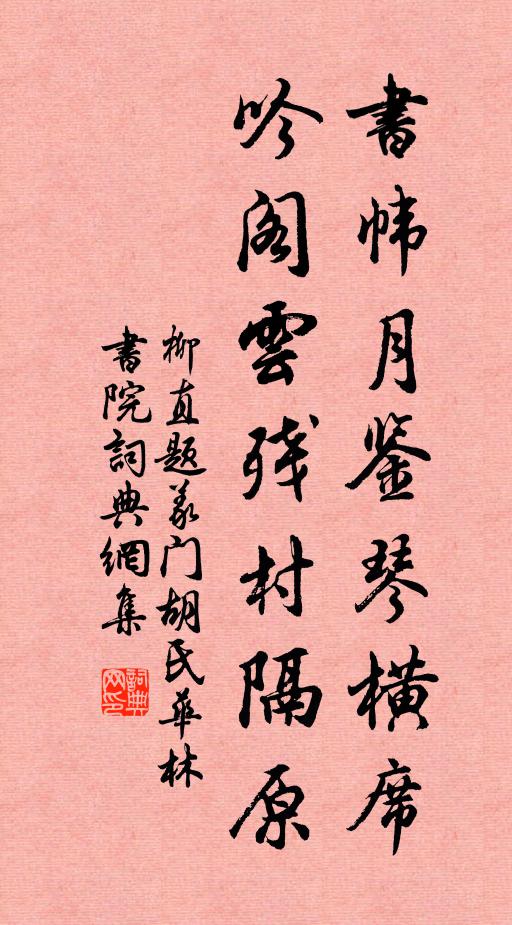 書帏月鉴琴橫席
吟阁雲残村隔原
柳直题义门胡氏華林
書院詞典網集
詞典网印